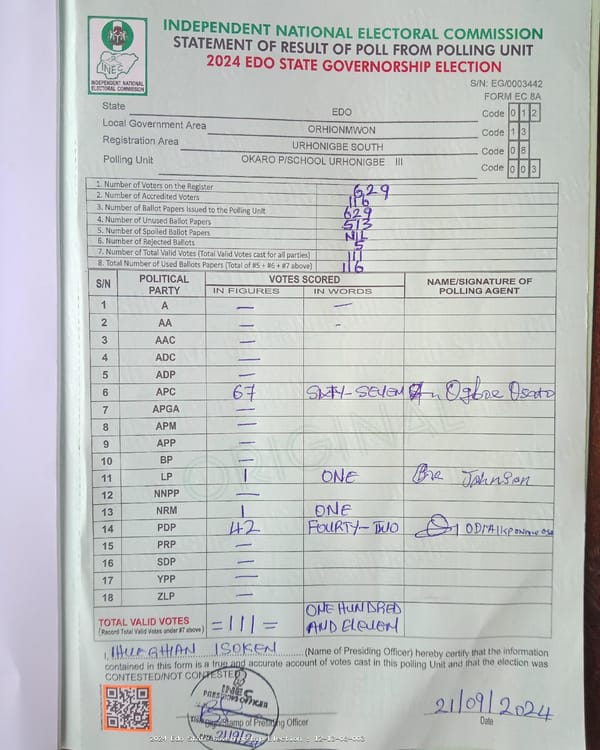 INDEPENDENT NATIONAL ELECTORAL COMMISSION
STATEMENT OF RESULT OF POLL FROM POLLING UNIT
2024 EDO STATE GOVERNORSHIP ELECTION
INEC
INDEPENDENT NATIONAL
ELECTORAL COMMISSION
S/N: EG/0003442
FORM EC 8A
State EDO Code 0 1 2
Local Government Area ORHIONMWON Code 1 3
Registration Area URHONIGBE SOUTH Code 0 8
Polling Unit OKARO P/SCHOOL URHONIGBE III Code 0 0 3
1. Number of Voters on the Register 629
2. Number of Accredited Voters 116
3. Number of Ballot Papers Issued to the Polling Unit 629
4. Number of Unused Ballot Papers 513
5. Number of Spoiled Ballot Papers NIL
6. Number of Rejected Ballots 5
7. Number of Total Valid Votes (Total Valid Votes cast for all parties) 111
8. Total Number of Used Ballots Papers (Total of #5 + #6 + #7 above) 116
S/N POLITICAL PARTY VOTES SCORED NAME/SIGNATURE OF POLLING AGENT
IN FIGURES IN WORDS
1 A — —
2 AA — -
3 AAC —
4 ADC —
5 ADP —
6 APC 67 SIXTY-SEVEN Ogboe Osato
7 APGA —
8 APM —
9 APP —
10 BP —
11 LP 1 ONE Johnson
12 NNPP —
13 NRM 1 ONE
14 PDP 42 FOURTY-TWO
15 PRP —
16 SDP —
17 YPP —
18 ZLP —
ORIGINAL
TOTAL VALID VOTES =111= ONE HUNDRED AND ELEVEN
(Record Total Valid Votes under #7 above)
I, IHUEGHIAN ISOKEN (Name of Presiding Officer) hereby certify that the information
contained in this form is a true and accurate account of votes cast in this polling Unit and that the election was
CONTESTED/NOT CONTESTED
INEC
PRESIDING OFFICER
Stamp of Presiding Officer
21/09/2024
Date